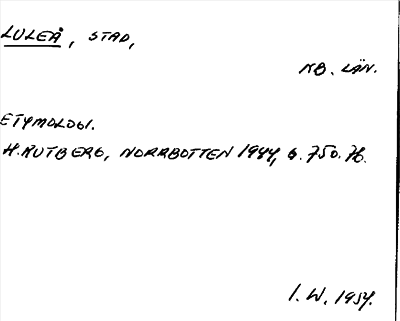 LULEÅ, STAD,
NB. LÄN.
ETYMOLOGI.
H. RUTBERG, NORRBOTTEN 1944, s. 750. 76.
I. W. 1954.